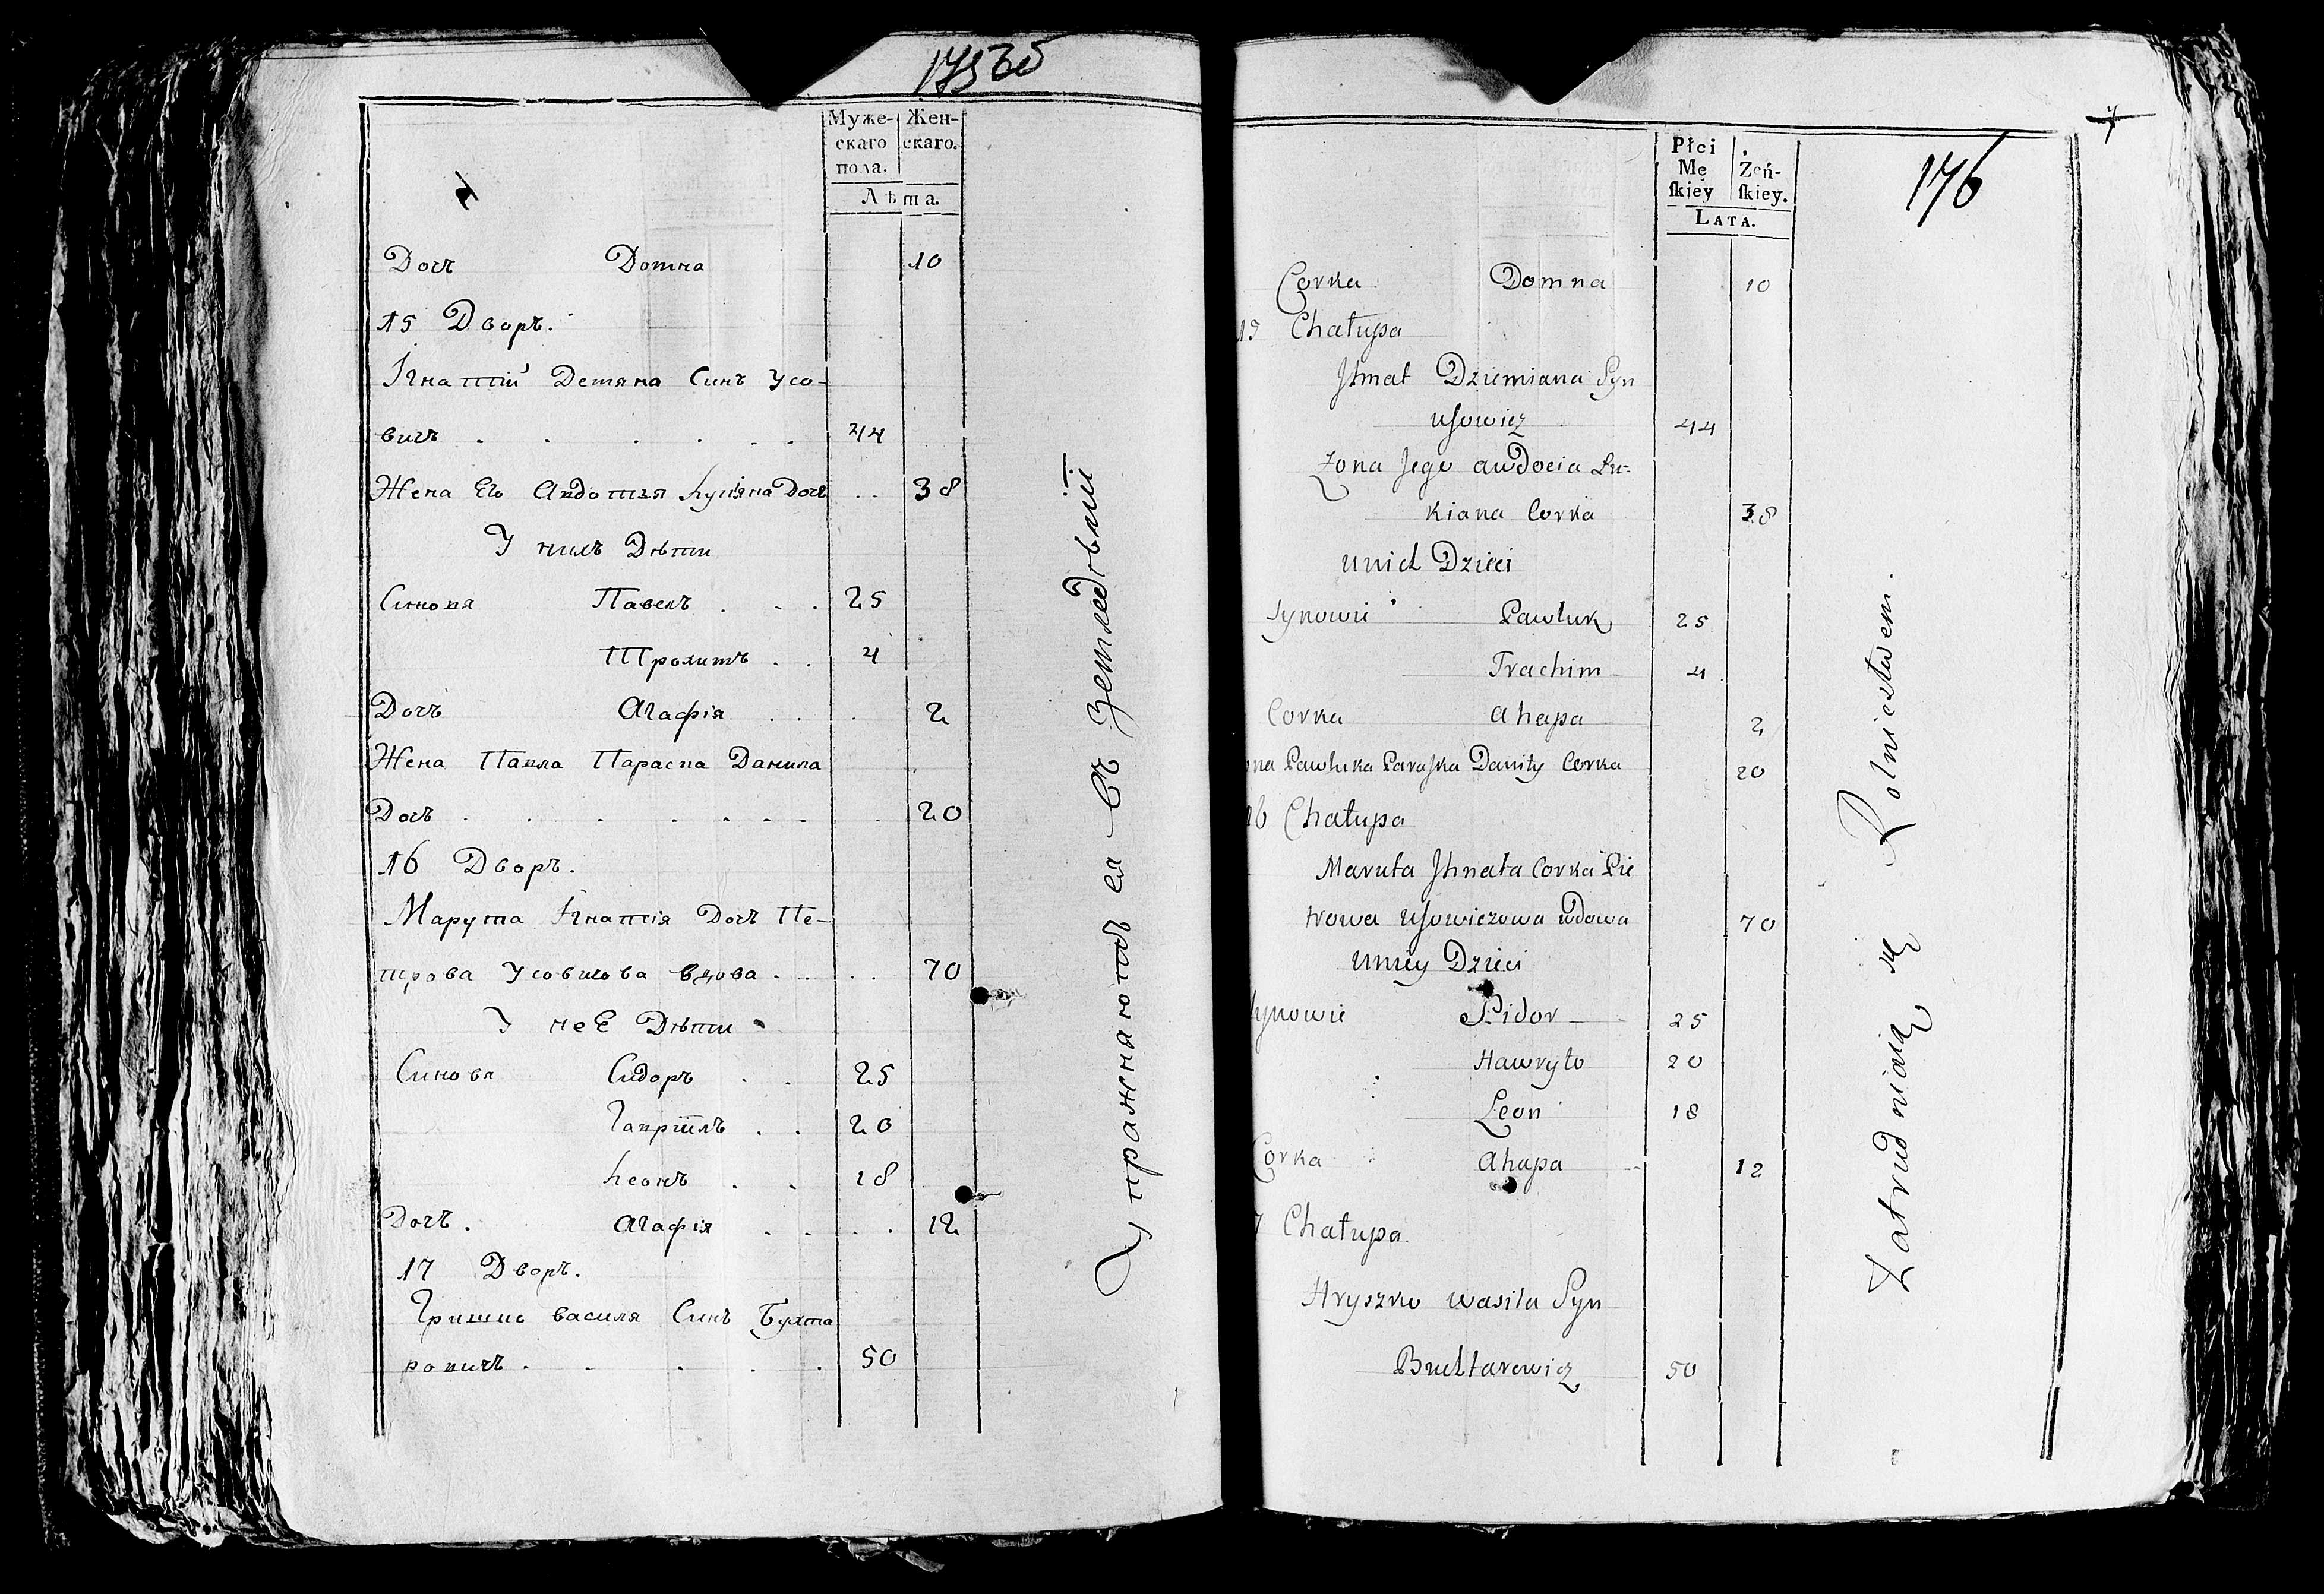 175 об
Муже-
скаго
пола.
Жен-
скаго.
Лѣта.
Дочъ Домна 10
15 Дворъ.
Iгнатiй Демяна Синъ Усо-
вичъ 44
Жена Его Авдотья Лукiяна Дочъ 38
У нихъ Дѣти
Синовя Павелъ 25
Трохимъ 4
Дочъ Агафiя 2
Жена Павла Параска Данила
Дочъ 20
16 Дворъ.
Марута Iгнатiя Дочъ Пе-
трова Усовичова вдова 70
У неЕ Дѣти
Синовя Сидоръ 25
Гаврiилъ 20
Леонъ 18
Дочъ. Агафiя 12
17 Дворъ.
Гришко василя Синъ Бухта
ровичъ 50
Упражняютъ ся въ Земледѣлiи
176
Płci
Mę
ſkiey
Żeń-
ſkiey.
LATA.
Corka Domna 10
15 Chałupa
Jhnat Dziemiana Syn
Uſowicz 44
Zona Jego awdocia Lu-
kiana Corka 38
unich Dzieci
Synowie Pawluk 25
Trachim 4
Corka ahapa 2
na Pawluka Paraſka Daniły Corka 20
16 Chałupa
Maruta Jhnata Corka Pie
trowa Uſowiczowa wdowa 70
uniey Dzieci
Synowie Sidor 25
Hawryło 20
Leon 18
Corka ahapa 12
7 Chałupa.
Hryszko wasila Syn
Buchtarewicz 50
Zatrudniaią się Rolnictwem.